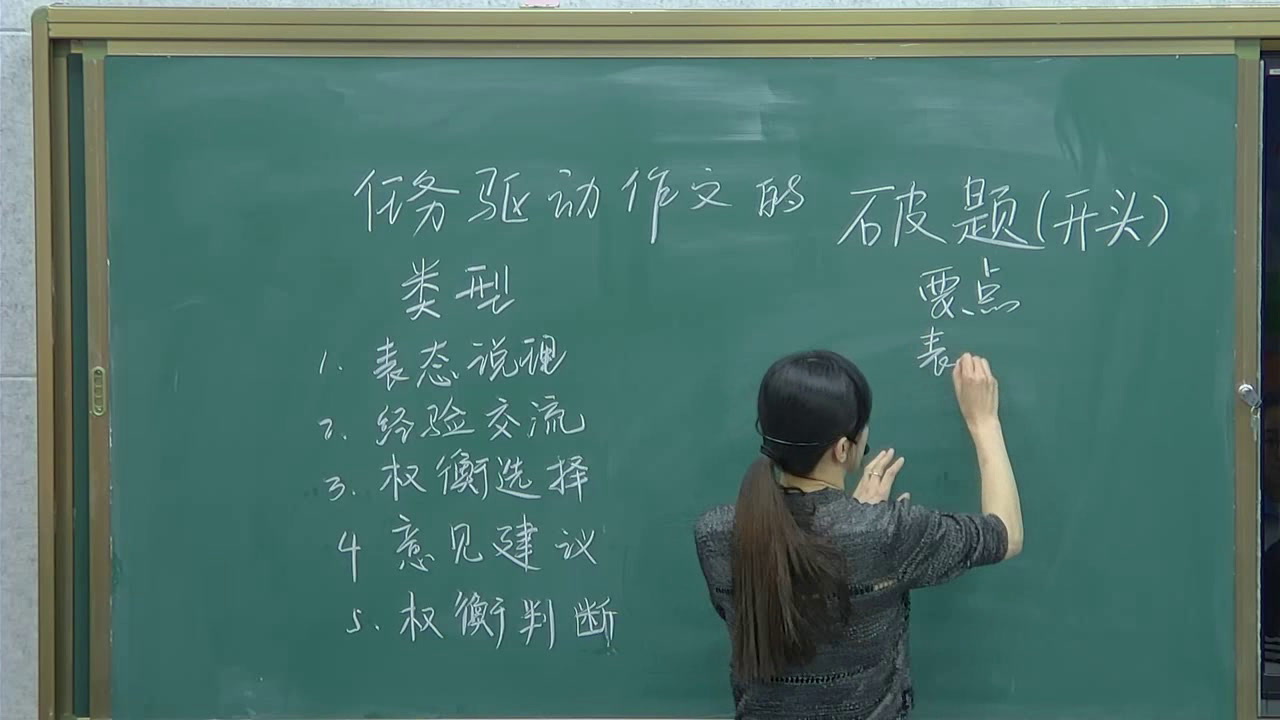 任务驱动作文的 破题(开头)
类型
要点
1. 表态说理
表
2. 经验交流
3. 权衡选择
4 意见建议
5. 权衡判断